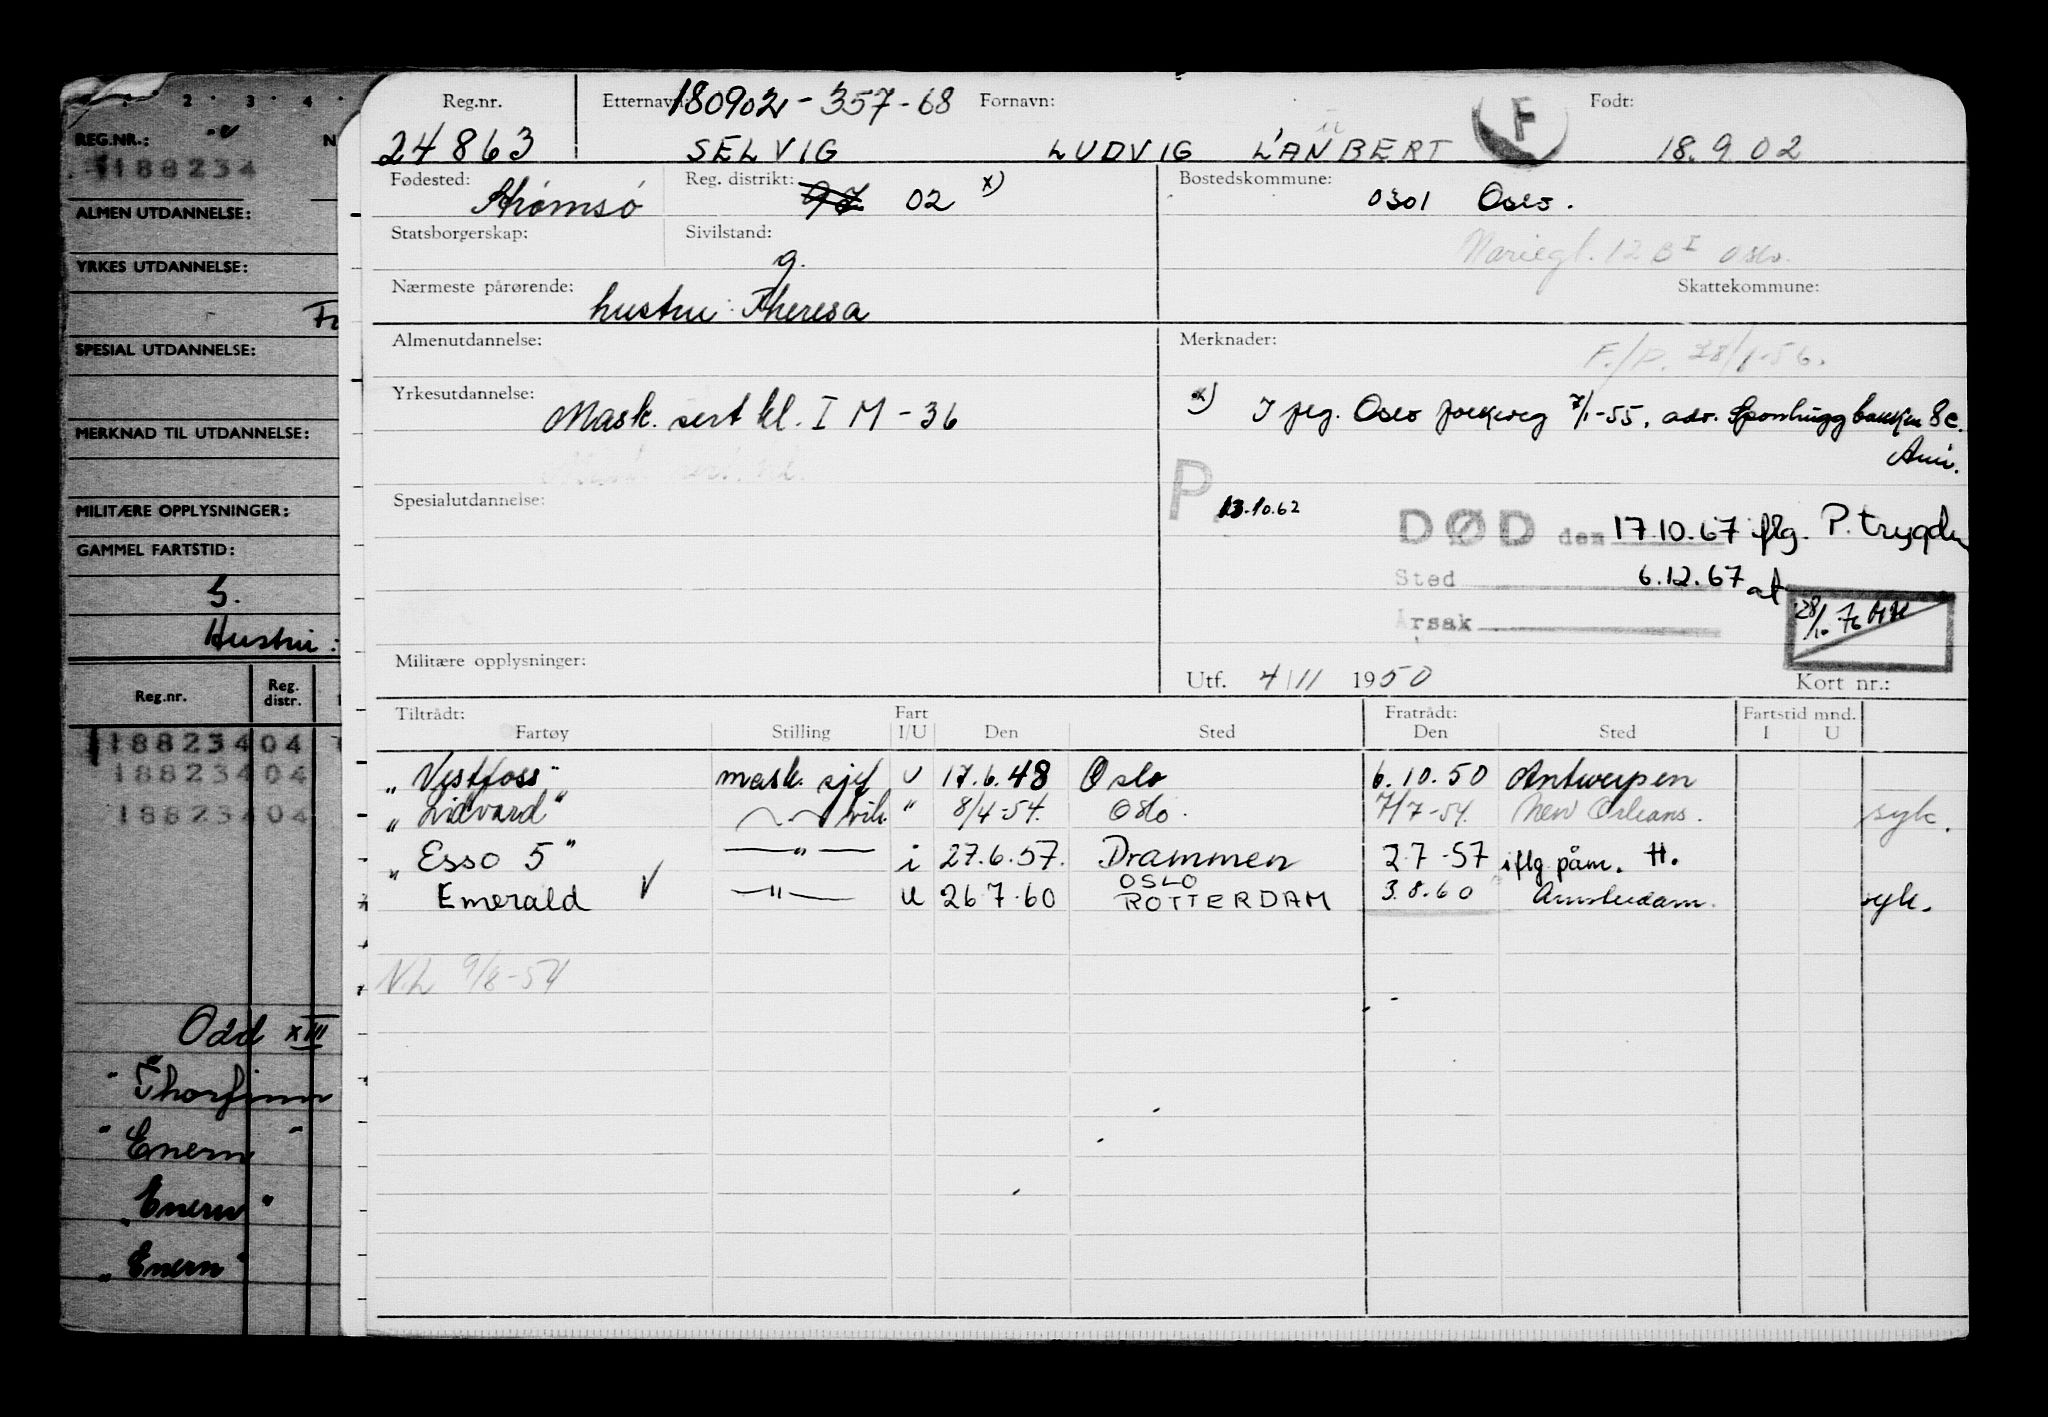 Reg.nr. Etternavn: 180902 - 357-68 Fornavn: F Født:
24863 SELVIG LUDVIG LANBERT 18.9.02
Fødested: Strømsø Reg. distrikt: 02 x) Bostedskommune: 0301 Oslo.
Statsborgerskap: Sivilstand: g. 12 B I Oslo.
Nærmeste pårørende: hustru: Theresa Skattekommune:
Almenutdannelse: Merknader: F./P. 28/1-56.
Yrkesutdannelse: Mask. sert kl. I M - 36 x) I flg. Oslo 7/1-55, adr. 8c.
Spesialutdannelse: P. 13.10.62 DØD den 17.10.67 iflg. P. trygden
Sted 6.12.67 at
Årsak 28/10 76
Militære opplysninger: Utf. 4/11 1950 Kort nr.:
Tiltrådt: Fart Fratrådt: Fartstid mnd.
Fartøy Stilling I/U Den Sted Den Sted I U
"Vestfoss" mask. sjef u 17.6.48 Oslo 6.10.50 Antwerpen
"Lidvard" " 8/4-54. Oslo. 7/7-54. New Orleans. syk.
"Esso 5" —"— i 27.6.57. Drammen 2.7-57 iflg påm. H.
Emerald V —"— U 26.7.60 OSLO ROTTERDAM 3.8.60 Amsterdam. syk.
N.L 9/8-54
1 2 3 4
REG.NR.: N
188234
ALMEN UTDANNELSE:
YRKES UTDANNELSE:
SPESIAL UTDANNELSE:
MERKNAD TIL UTDANNELSE:
MILITÆRE OPPLYSNINGER:
GAMMEL FARTSTID:
Hustru:
Reg.nr. Reg. distr.
188234 04
188234 04
188234 04
Odd XIII
"Thorfinn
"Enern"
"Enern"
"Enern"